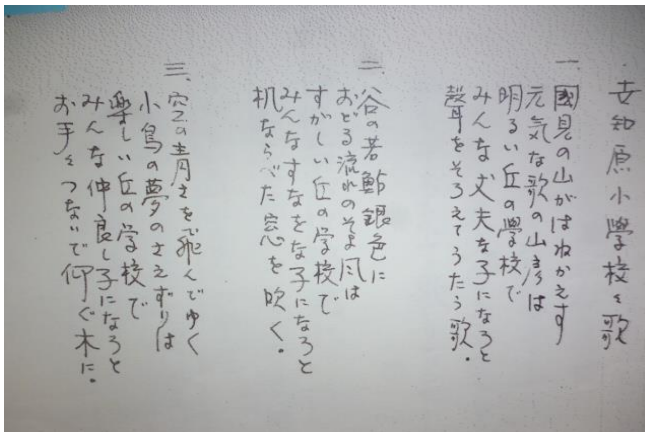 世知原小學校々歌
一、國見の山がはねかえす
元気な歌の山彦は
明るい丘の學校で
みんな丈夫な子になろと
聲をそろえてうたう歌.
二、谷の若鮎銀色に
おどる流れのそよ风は
すがしい丘の学校で
みんなすなをな子になろと
机ならべた窓を吹く.
三、空の青さを飛んでゆく
小鳥の夢のさえずりは
楽しい丘の学校で
みんな仲良し子になろと
お手々つないで仰ぐ木に.